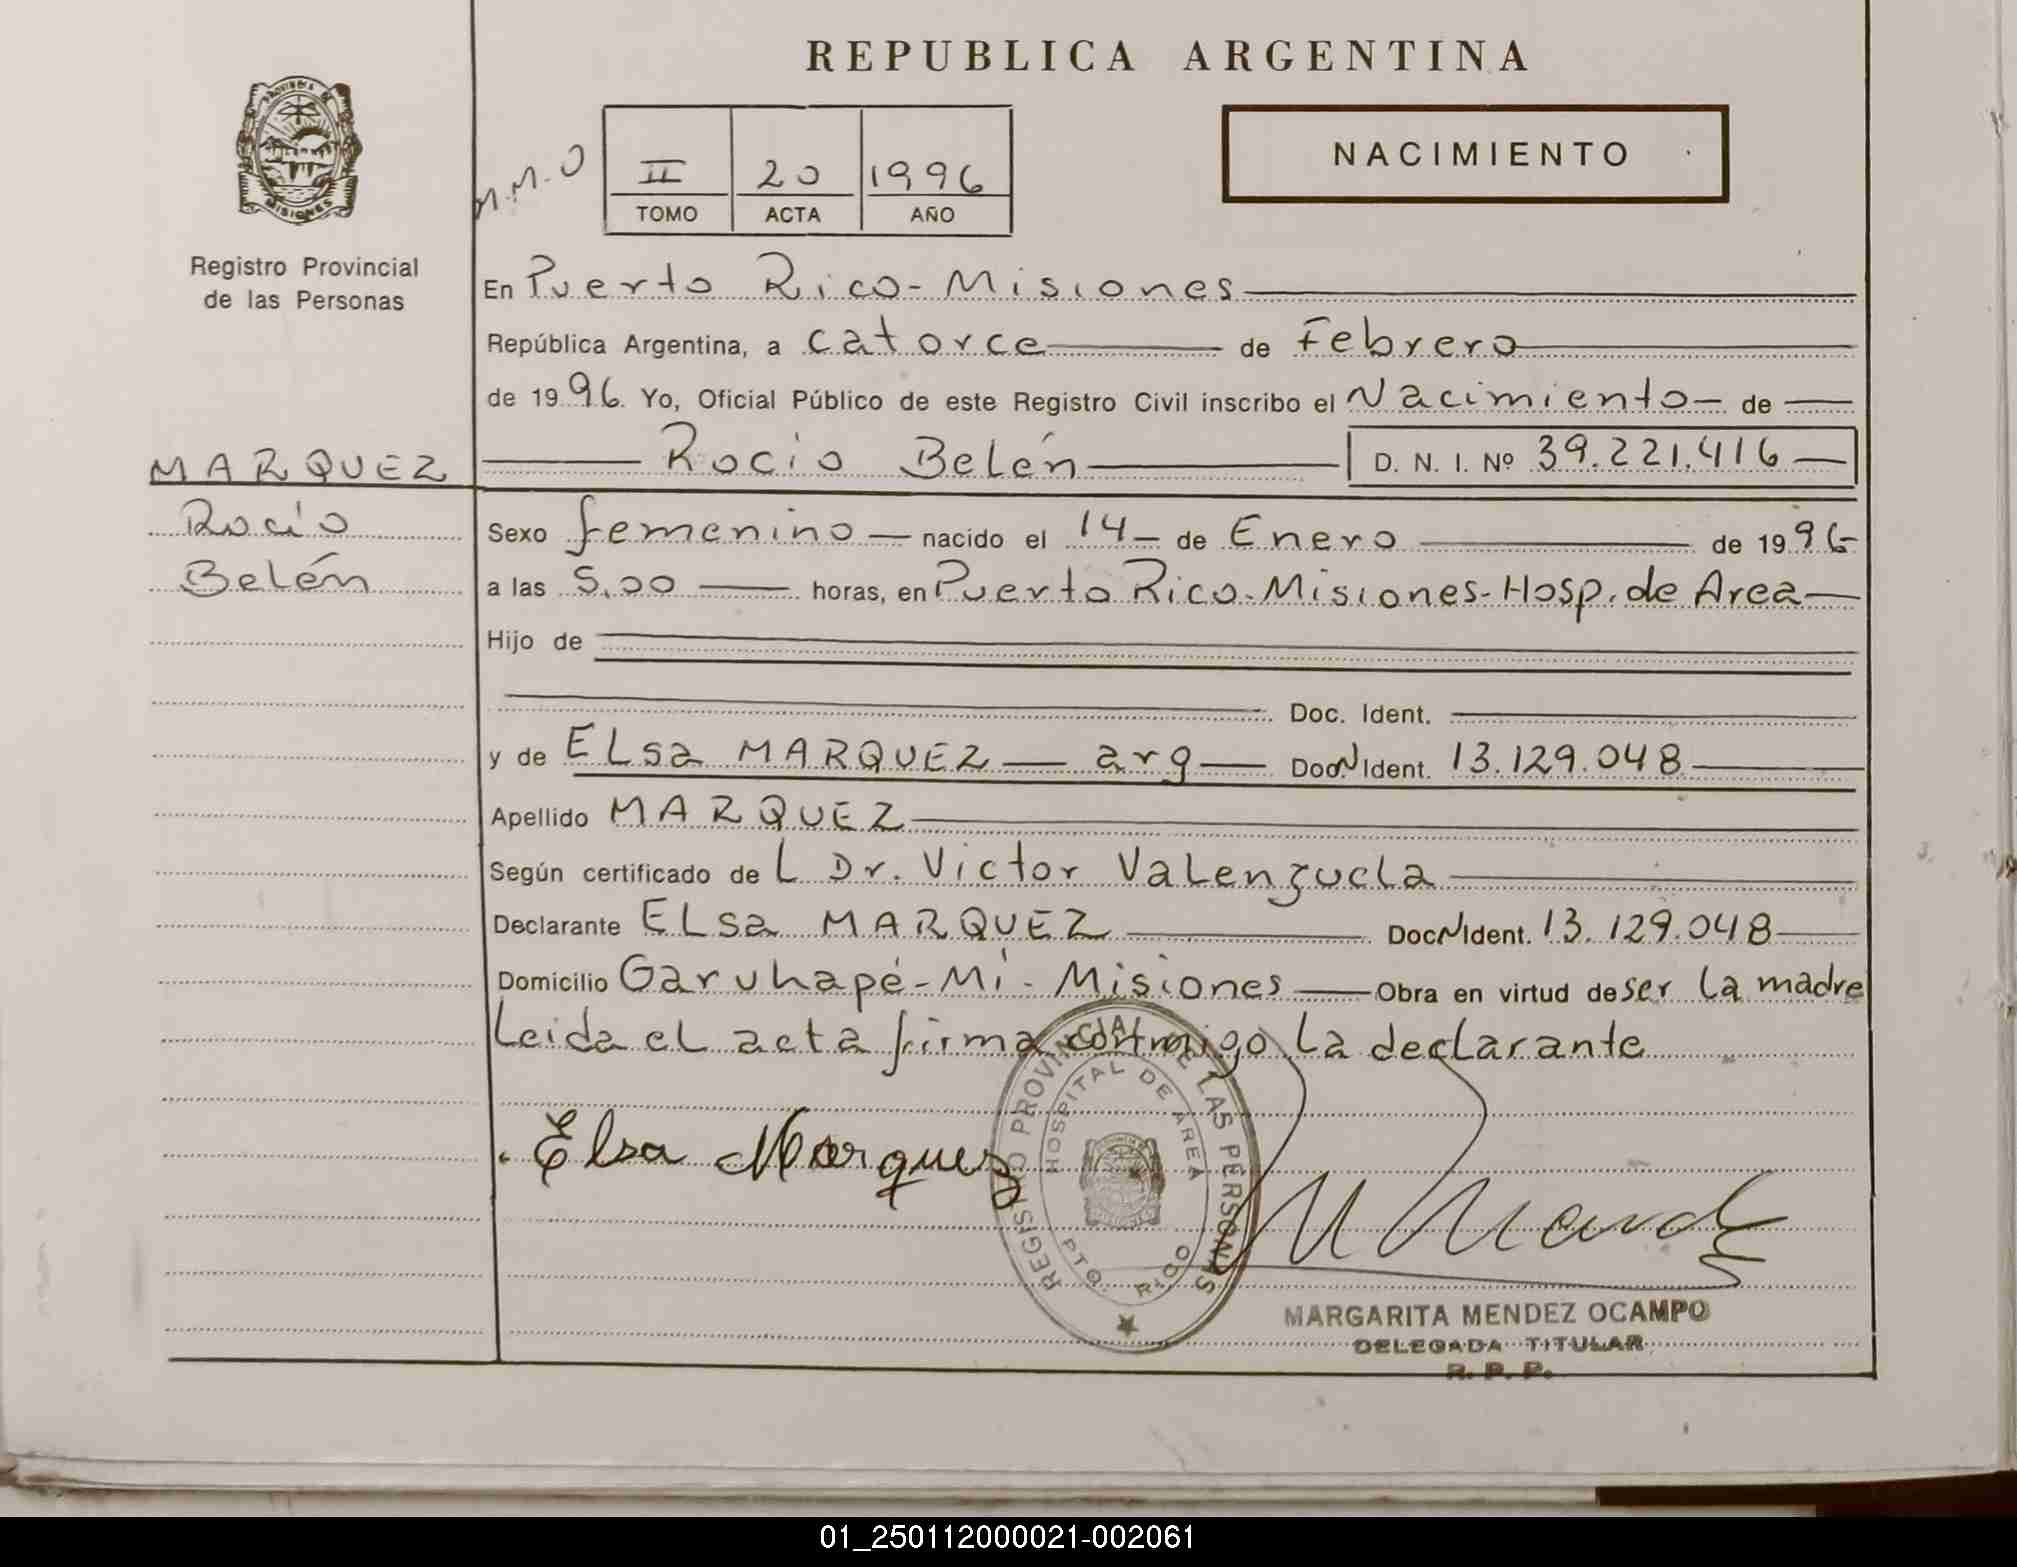 REPUBLICA ARGENTINA
PROVINCIA DE
MISIONES
Registro Provincial
de las Personas
M.M.O
II 20 1996
TOMO ACTA AÑO
NACIMIENTO
En Puerto Rico - Misiones
República Argentina, a catorce de Febrero
de 1996. Yo, Oficial Público de este Registro Civil inscribo el Nacimiento de
Rocio Belén D. N. I. Nº 39.221.416
MARQUEZ
Rocío
Belén
Sexo femenino nacido el 14 de Enero de 1996
a las 5,00 horas, en Puerto Rico - Misiones - Hosp. de Area
Hijo de
Doc. Ident.
y de ELsa MARQUEZ arg Doc N Ident. 13.129.048
Apellido MARQUEZ
Según certificado de L Dr. Victor Valenzuela
Declarante ELsa MARQUEZ Doc N Ident. 13.129.048
Domicilio Garuhapé - Mí - Misiones Obra en virtud de ser la madre
Leida el acta firma conmigo la declarante
Elsa Marquez
REGISTRO PROVINCIAL DE LAS PERSONAS
HOSPITAL DE AREA
PTO. RICO
MARGARITA MENDEZ OCAMPO
DELEGADA TITULAR
R. P. P.
01_250112000021-002061